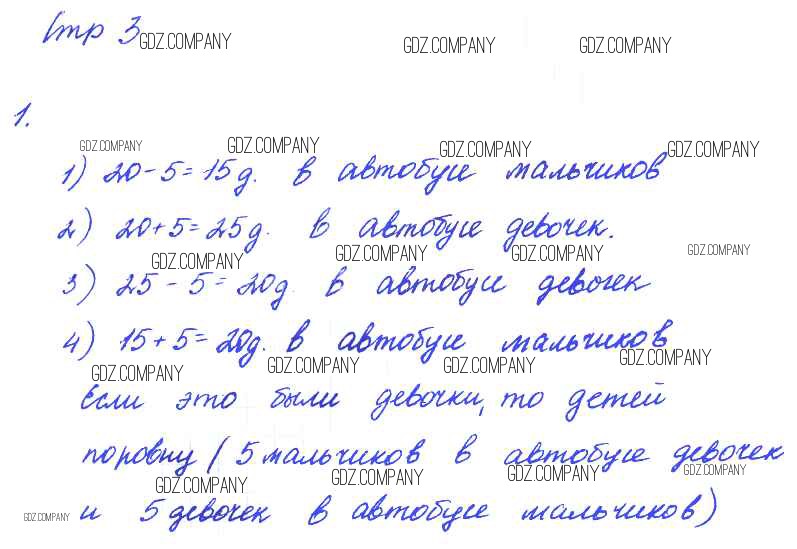 Стр 3
GDZ.COMPANY GDZ.COMPANY GDZ.COMPANY
1.
GDZ.COMPANY GDZ.COMPANY GDZ.COMPANY GDZ.COMPANY
1) 20-5=15д. в автобусе мальчиков
2) 20+5=25д. в автобусе девочек.
GDZ.COMPANY GDZ.COMPANY GDZ.COMPANY GDZ.COMPANY
3) 25-5=20д. в автобусе девочек
4) 15+5=20д. в автобусе мальчиков
GDZ.COMPANY GDZ.COMPANY GDZ.COMPANY GDZ.COMPANY
Если это были девочки, то детей
поровну (5 мальчиков в автобусе девочек
GDZ.COMPANY GDZ.COMPANY GDZ.COMPANY GDZ.COMPANY
GDZ.COMPANY и 5 девочек в автобусе мальчиков)